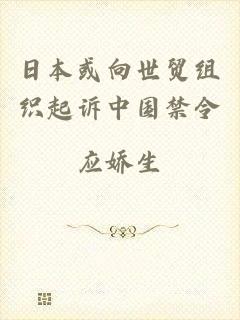 日本或向世贸组
织起诉中国禁令
应娇生